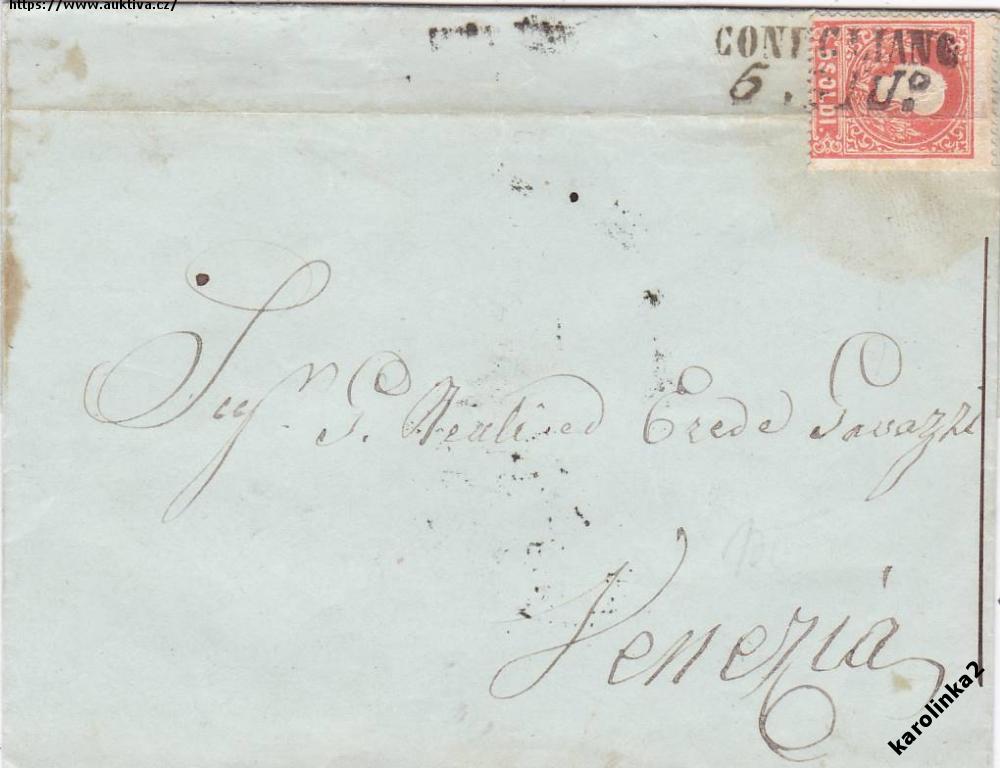 https://www.auktiva.cz/
CONEGLIANO
6 GIU:
SOLDI 5
Sigri G. Reali ed Erede Gavazzi
Venezia
karolinka2